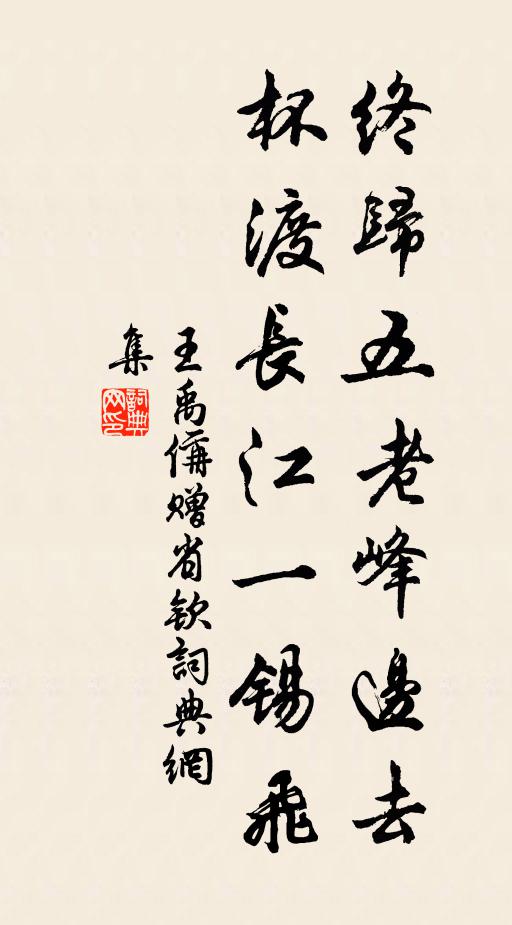 終歸五老峰邊去
杯渡長江一錫飛
王禹偁贈省欽詞典網
集
詞典
网印